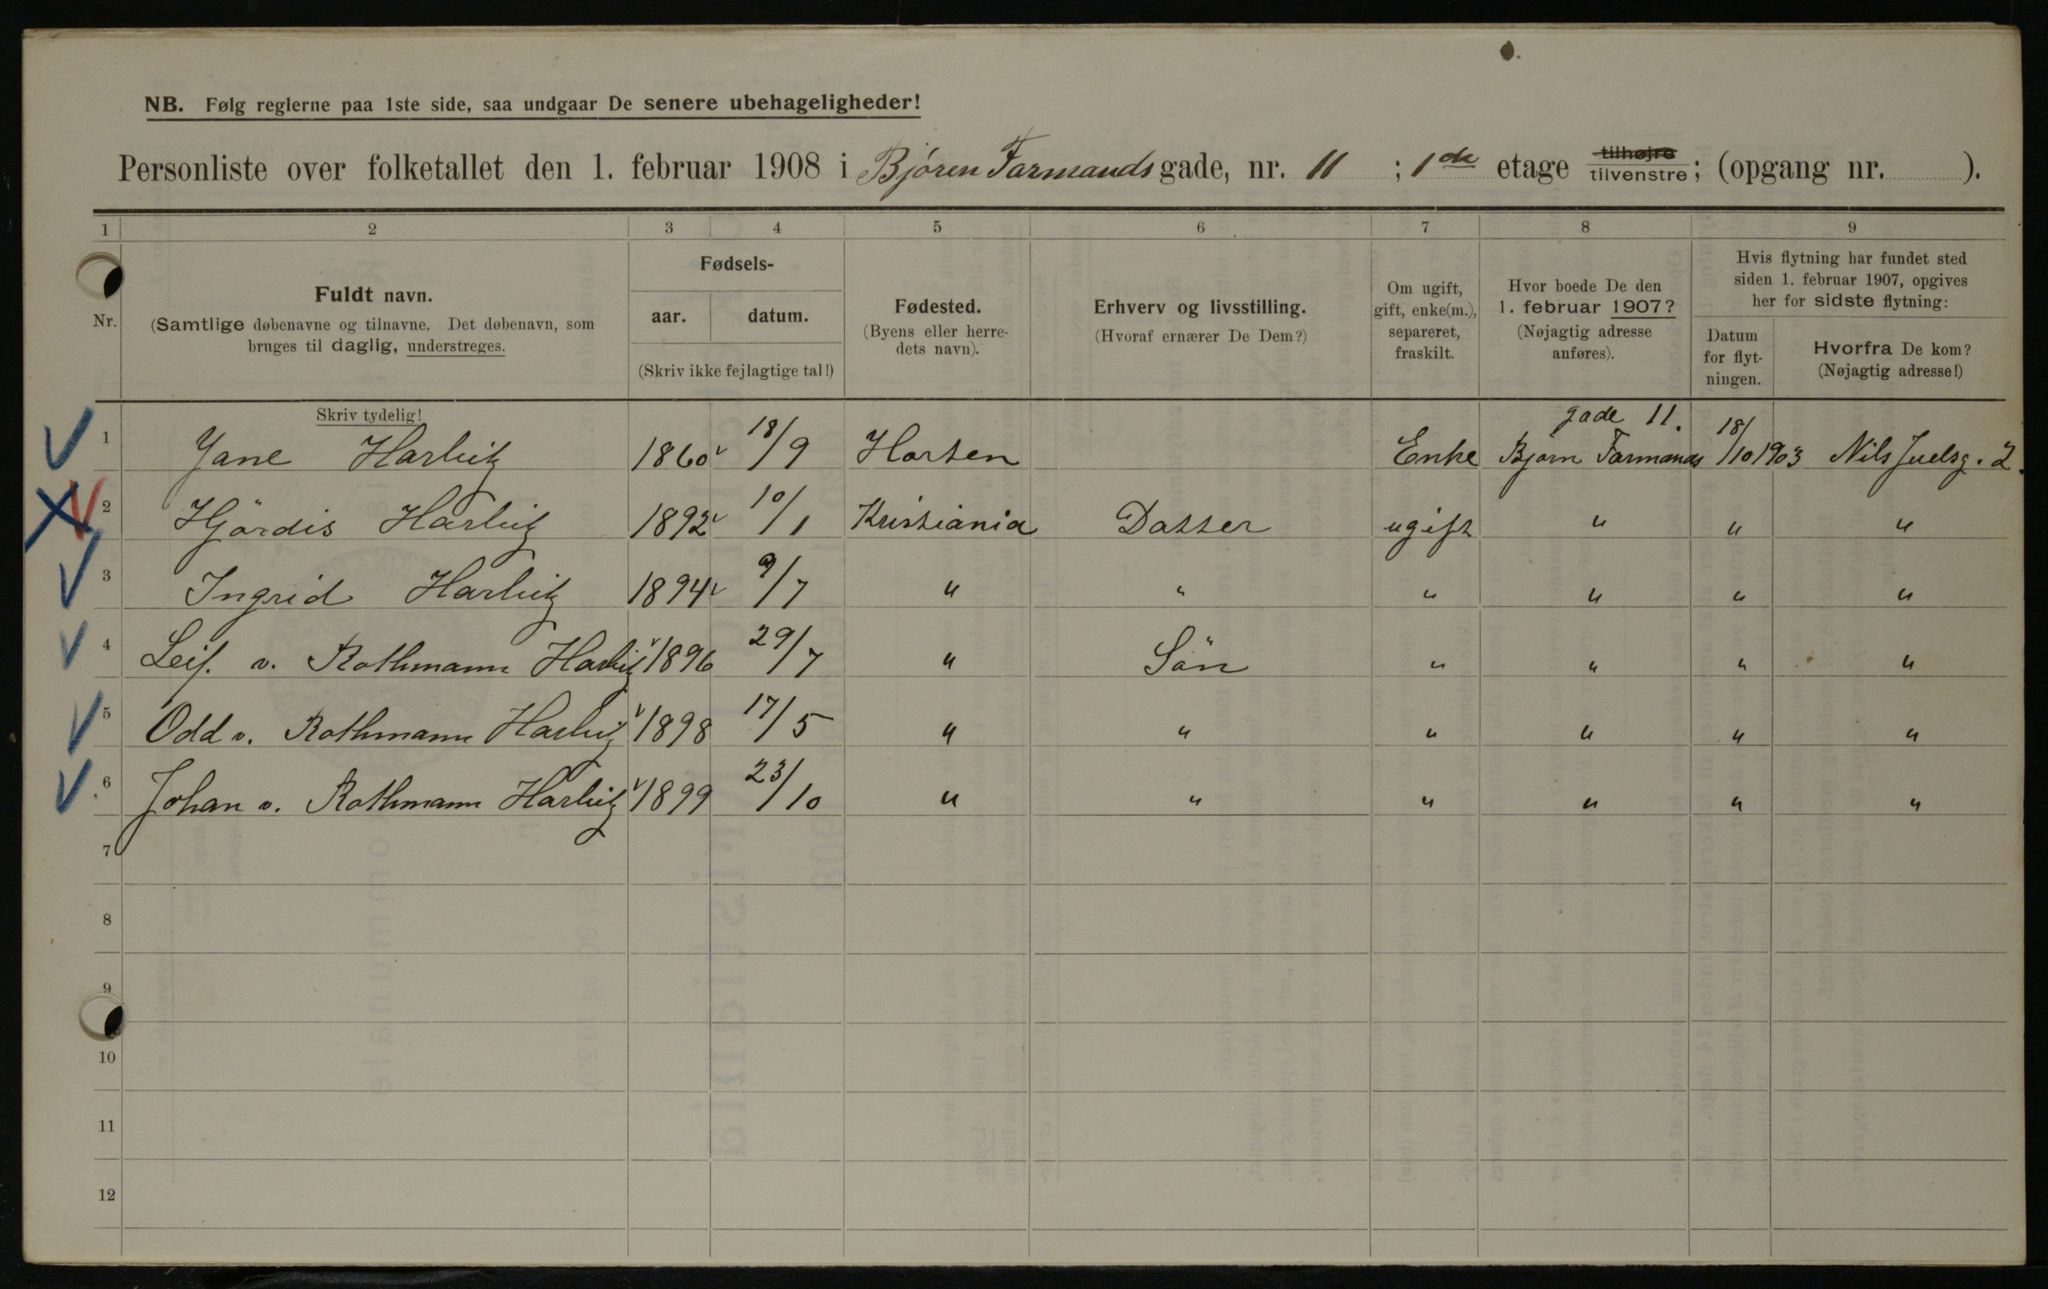 NB. Følg reglerne paa 1ste side, saa undgaar De senere ubehageligheder!
Personliste over folketallet den 1. februar 1908 i Bjøren Farmands gade, nr. 11 ; 1de etage tilhøjre tilvenstre; (opgang nr. ).
1 2 3 4 5 6 7 8 9
Nr. Fuldt navn. (Samtlige døbenavne og tilnavne. Det døbenavn, som bruges til daglig, understreges.
Fødsels- aar. datum. (Skriv ikke fejlagtige tal!)
Fødested. (Byens eller herredets navn).
Erhverv og livsstilling. (Hvoraf ernærer De Dem?)
Om ugift, gift, enke(m.), separeret, fraskilt.
Hvor boede De den 1. februar 1907? (Nøjagtig adresse anføres).
Hvis flytning har fundet sted siden 1. februar 1907, opgives her for sidste flytning:
Datum for flytningen. Hvorfra De kom? (Nøjagtig adresse!)
Skriv tydelig!
1 Jane Harbitz 1860 18/9 Horten Enke Bjørn Farmands gade 11. 18/10 1903 Nils Juelsg. 2.
2 Hjördis Harbitz 1892 10/1 Kristiania Datter ugift " " "
3 Ingrid Harbitz 1894 9/7 " " " " " "
4 Leif. v. Rothmann Harbitz 1896 29/7 " Sön " " " "
5 Odd v. Rothmann Harbitz 1898 17/5 " " " " " "
6 Johan v. Rothmann Harbitz 1899 23/10 " " " " " "
7
8
9
10
11
12